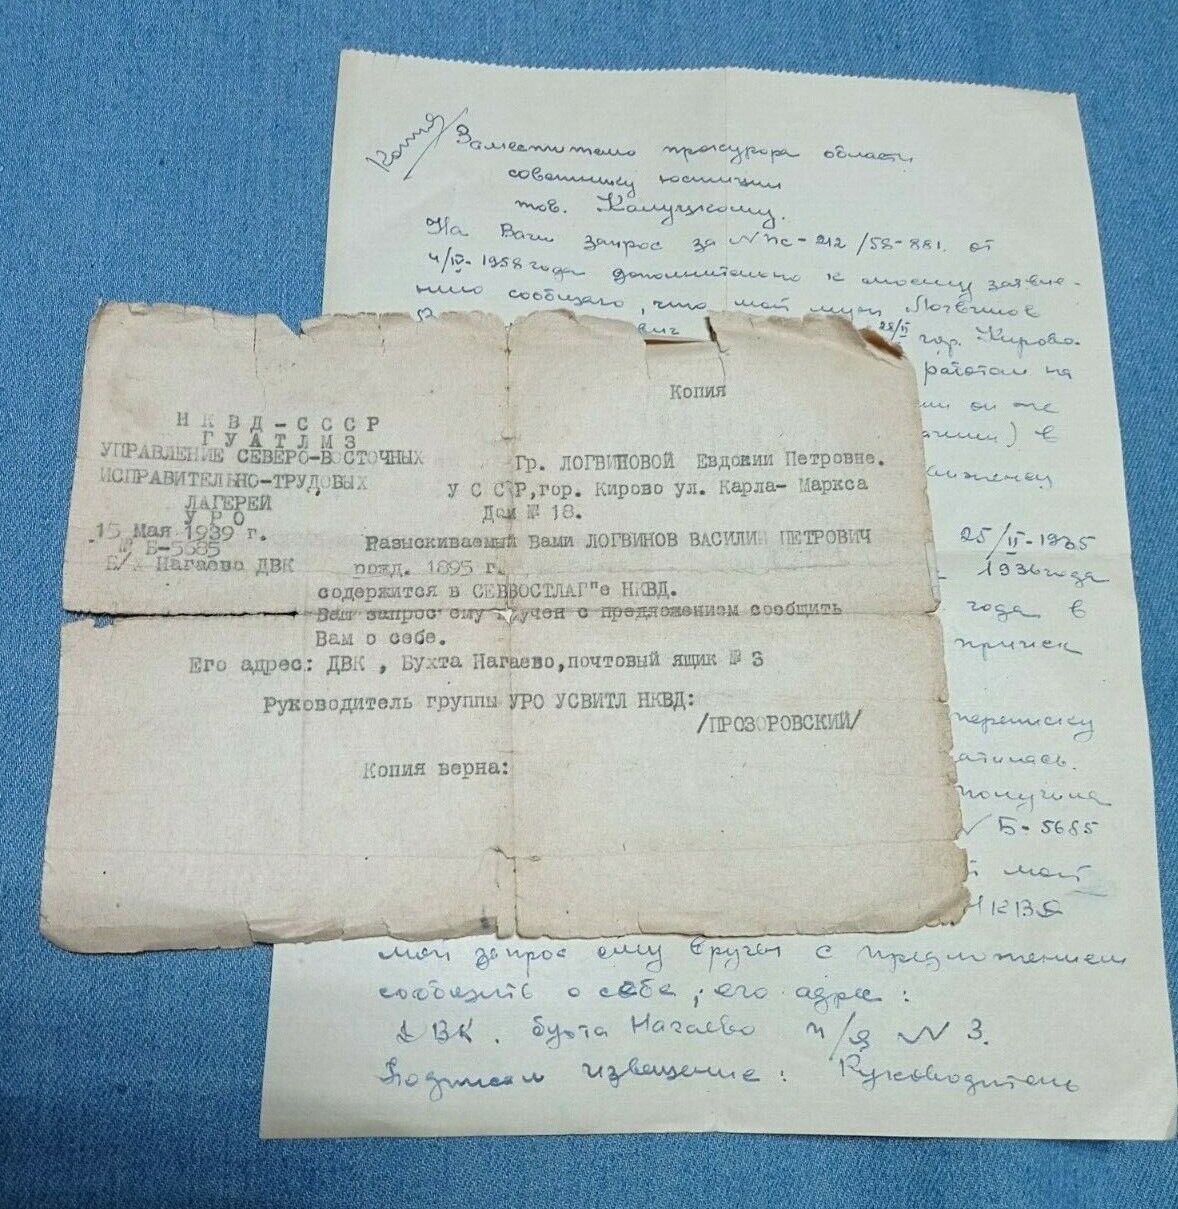 Копия
Заместителю прокурора области
советнику юстиции
тов. Калуцкому.
На Ваш запрос за № пс-212/58-881. от
4/IV-1958 года дополнительно к моему заявле-
нию сообщаю, что мой муж Логвинов
28/II гор. Кирово-
работал на
он же
в
25/II-1935
1936 года
года в
прииск
переписку
получила
№ Б-5685
мой
НКВД
мой запрос ему вручен с предложением
сообщить о себе, его адрес:
ДВК. бухта Нагаево п/я № 3.
Подписал извещение: Руководитель
Копия
НКВД-СССР
ГУАТЛМЗ
УПРАВЛЕНИЕ СЕВЕРО-ВОСТОЧНЫХ
ИСПРАВИТЕЛЬНО-ТРУДОВЫХ
ЛАГЕРЕЙ
УРО
15 Мая 1939 г.
№ Б-5685
Б/х Нагаево ДВК
Гр. ЛОГВИНОВОЙ Евдокии Петровне.
УССР, гор. Кирово ул. Карла- Маркса
Дом № 18.
Разыскиваемый Вами ЛОГВИНОВ ВАСИЛИЙ ПЕТРОВИЧ
рожд. 1895 г.
содержится в СЕВВОСТЛАГ"е НКВД.
Ваш запрос ему вручен с предложением сообщить
Вам о себе.
Его адрес: ДВК, Бухта Нагаево, почтовый ящик № 3
Руководитель группы УРО УСВИТЛ НКВД:
/ПРОЗОРОВСКИЙ/
Копия верна: